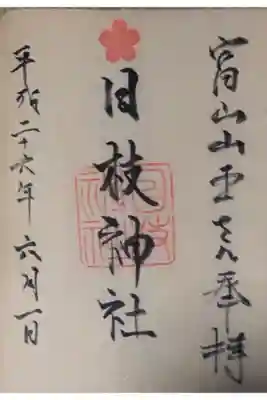 富山山王さん奉拝
日枝神社
平成二十六年 六月一日